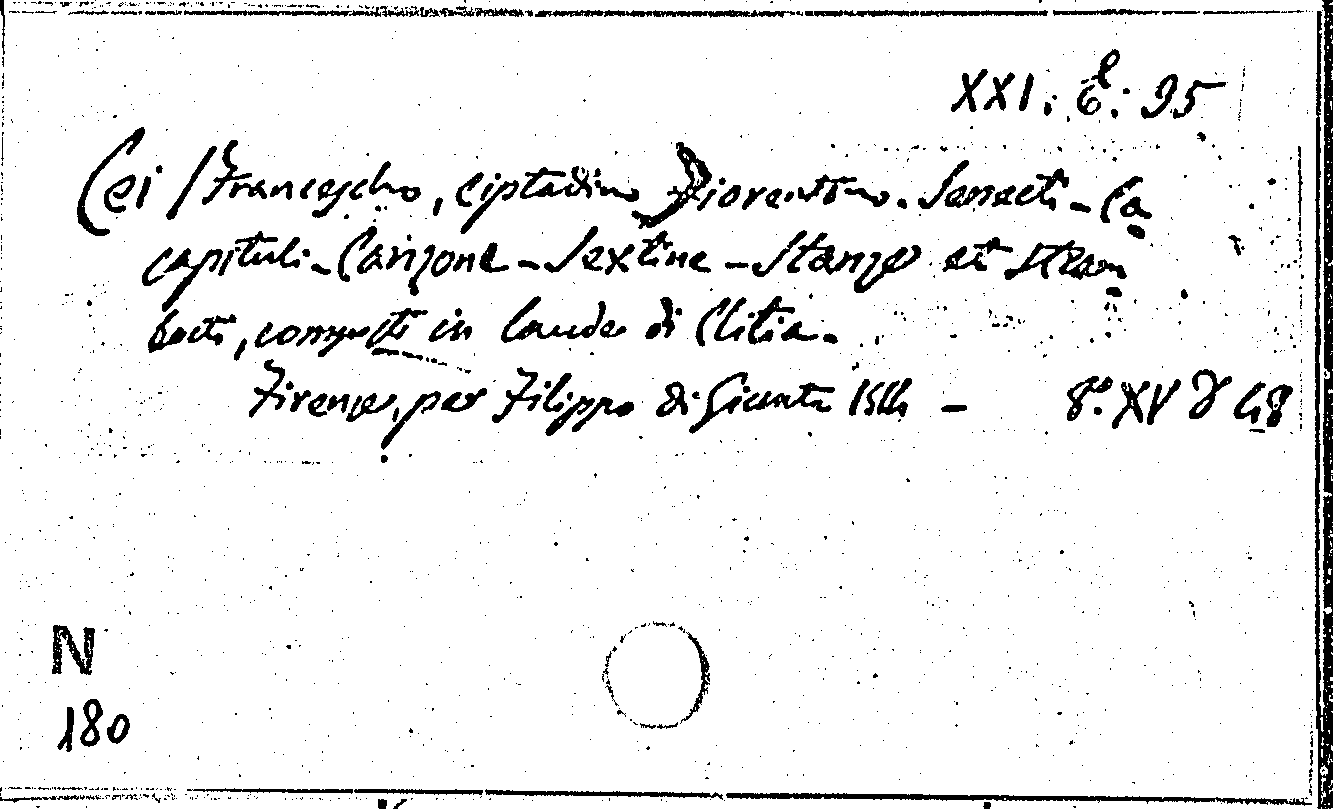 XXI. E. 95
Cei / Francescho, ciptadino Fiorentino. Sonecti - Ca
capituli - Canzone - Sextine - Stanze et Stram
bocti, composti in laude di Clitia.
Firenze, per Filippo di Giunta 1514 - 8º. XV 48
N
180